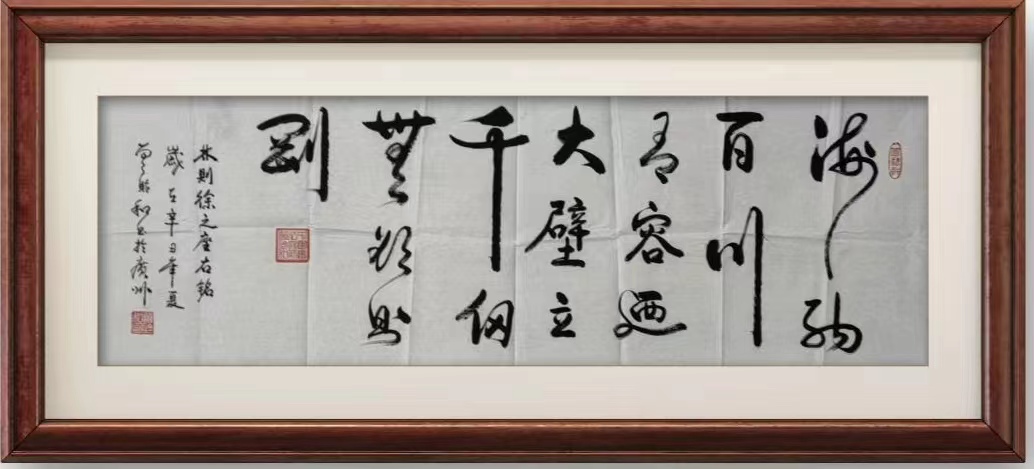 海納
百川
有容迺
大壁立
千仞
無欲則
剛
林則徐之座右銘
歲在辛丑年夏
和書於廣州